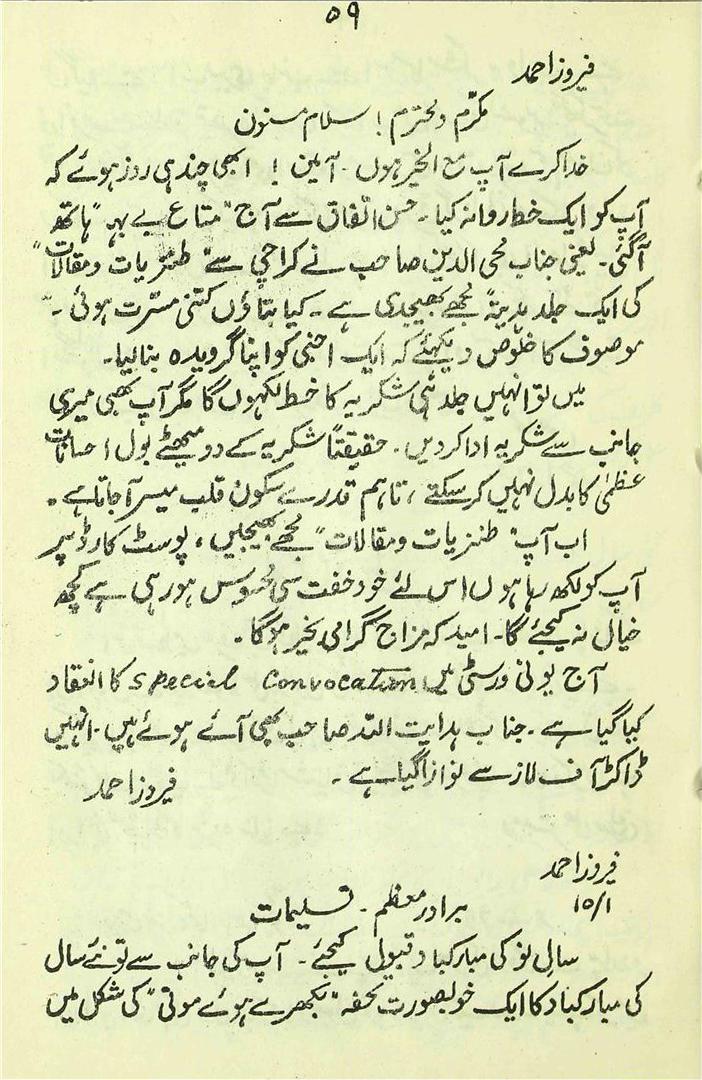 ۵۹
فیروز احمد
مکرّم و محترم ! سلام مسنون
خدا کرے آپ مع الخیر ہوں ۔ آمین ! ابھی چند ہی روز ہوئے کہ
آپ کو ایک خط روانہ کیا ۔ حسن اتفاق سے آج "متاع بے بہر" ہاتھ
آ گئی ۔ یعنی جناب محی الدین صاحب نے کراچی سے "طنزیات و مقالات"
کی ایک جلد ہدیتہً مجھے بھیجدی ہے ۔ کیا بتاؤں کتنی مسّرت ہوئی ۔
موصوف کا خلوص دیکھئے کہ ایک اجنبی کو اپنا گرویدہ بنالیا ۔
میں تو انہیں جلد ہی شکریہ کا خط لکھوں گا مگر آپ بھی میری
جانب سے شکریہ ادا کر دیں ۔ حقیقتاً شکریہ کے دو میٹھے بول احسانات
عظمیٰ کا بدل نہیں کر سکتے ، تاہم قدرے سکون قلب میسر آجاتا ہے ۔
اب آپ "طنزیات و مقالات" مجھے نہ بھیجیں ، پوسٹ کارڈ پر
آپ کو لکھ رہا ہوں اس لئے خود خفت سی محسوس ہو رہی ہے کچھ
خیال نہ کیجئے گا ۔ امید کہ مزاج گرامی بخیر ہوگا ۔
آج یونی ورسٹی میں Special Convocation کا انعقاد
کیا گیا ہے ۔ جناب ہدایت اللہ صاحب بھی آئے ہوئے ہیں ۔ انہیں
ڈاکٹر آف لاز سے نوازا گیا ہے ۔
فیروز احمد
فیروز احمد
۱۵/۱
برادر معظم ۔ تسلیمات
سالِ نو کی مبارکباد قبول کیجئے ۔ آپ کی جانب سے تو نئے سال
کی مبارکباد کا ایک خوبصورت تحفہ "بکھرے ہوئے موتی" کی شکل میں